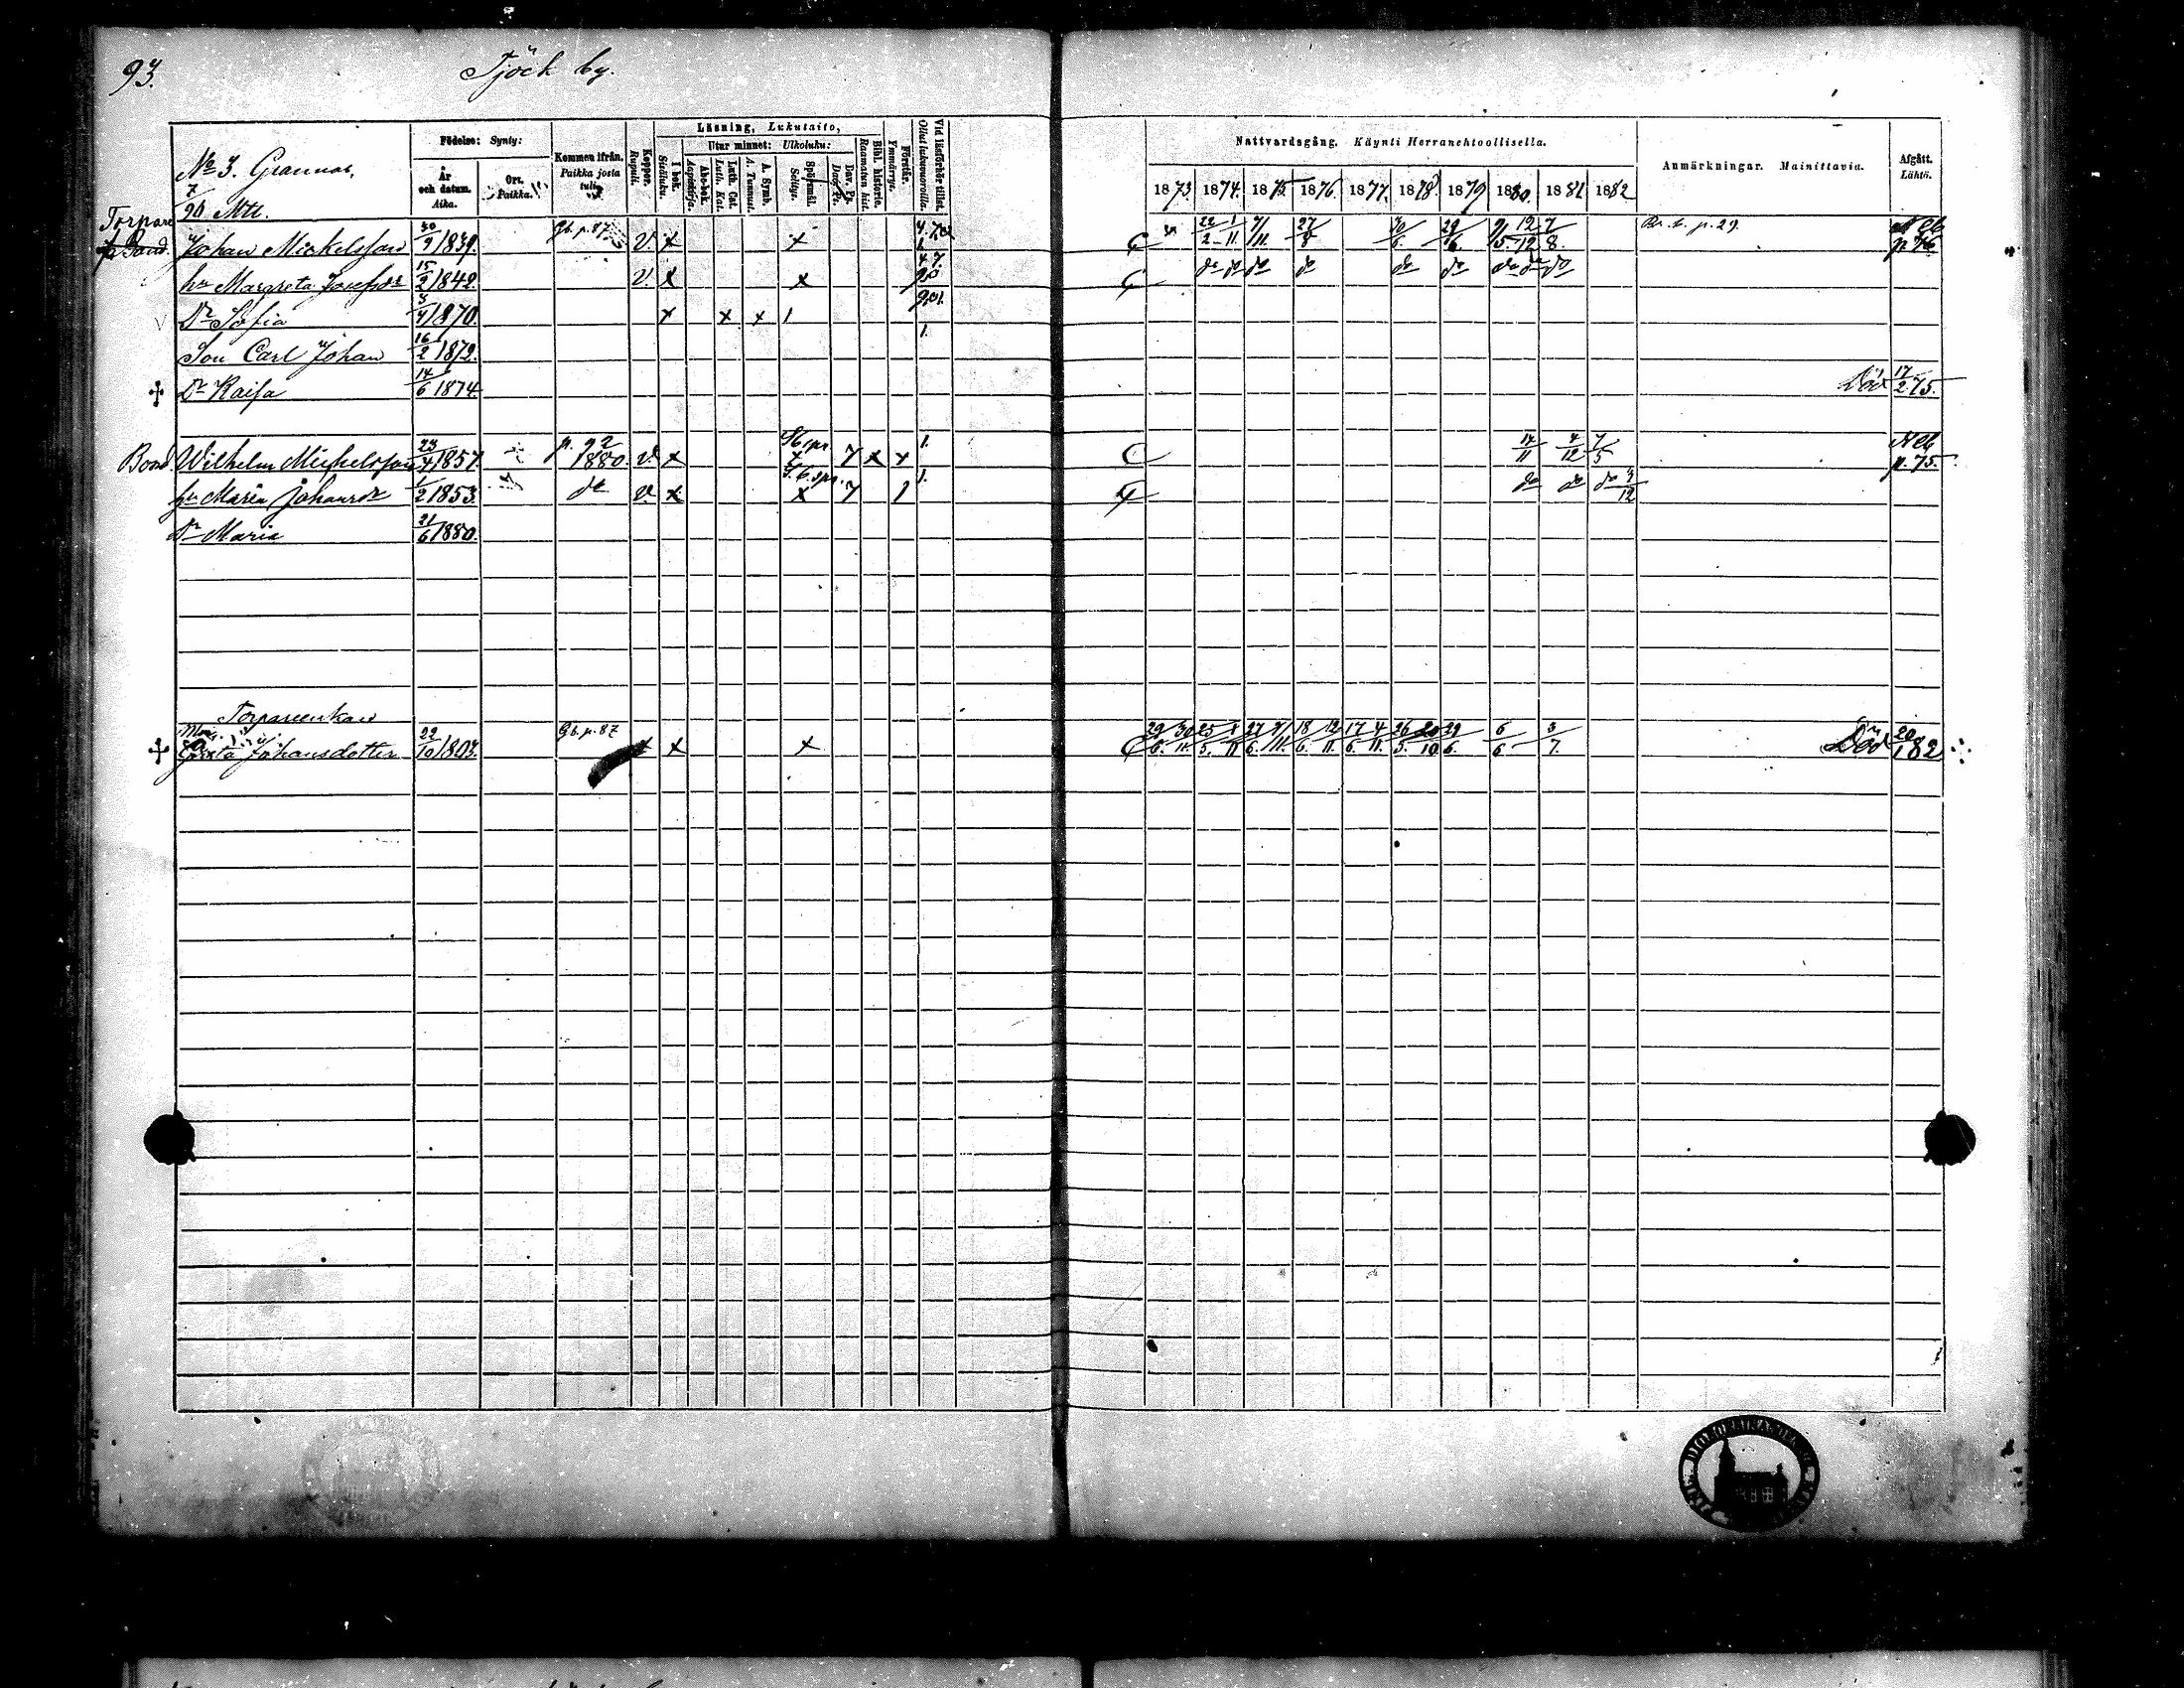 93.
Tjöck by.
No 3. Grannas,
7/96 Mtl.
Födelse: Synty:
År och datum. Aika.
Ort. Paikka.
Kommen ifrån. Paikka josta tulip
Koppor. Rupuli.
Läsning, Lukutaito,
I bok. Sisäluku.
Utur minnet: Ulkoluku:
Abc-bok Aapiskirja.
Luth. Cat. Luth. Kat.
A. Symb. A. Tunnust.
Spörsmål Selitys.
Dav. Ps. Dav. Ps.
Bibl. historie. Raamatun hist.
Förstår. Ymmärrys.
Vid läsförhör tillst. Ollut lukuvuoroilla.
Nattvardsgång. Käynti Herranehtoollisella.
1873. 1874. 1875 1876. 1877. 1878 1879 1880. 1881 1882
Anmärkningar. Mainittavia.
Afgått. Lähtö.
Torpare
Johan Mickelsson 30/9 1839. Gb. p. 87 v. x x 22/2 1/11. 27/8 30/6. 29/6. 7/8. p. 29. N Cb p 76
hu Margreta Josefsdr 15/2 1842. v. x x do do do do do do do do do
Dr Sofia 3/4 1870. x x x 1
Son Carl Johan 16/2 1872. 1.
Dr Kaisa 14/6 1874. Död 17/2 75.
Bond. Wilhelm Michelsson 23/4 1857. p. 92 1880. v. x 7 x x 1. 14/11 4/12 7/5 N Cb p. 75.
hu Maria Johansdr 1/2 1853. do v. x x 7 1 1. do do do 3/12
Dr Maria 21/6 1880.
Torpareenkan
Greta Johansdotter 22/10 1803. Gb. p. 87 x x x 29/6. 30/11 25/5. 27/6. 18/6. 12/11. 17/6. 4/11. 26/5. 20/10 29/6. 6/6 3/7. Död 20/1 82